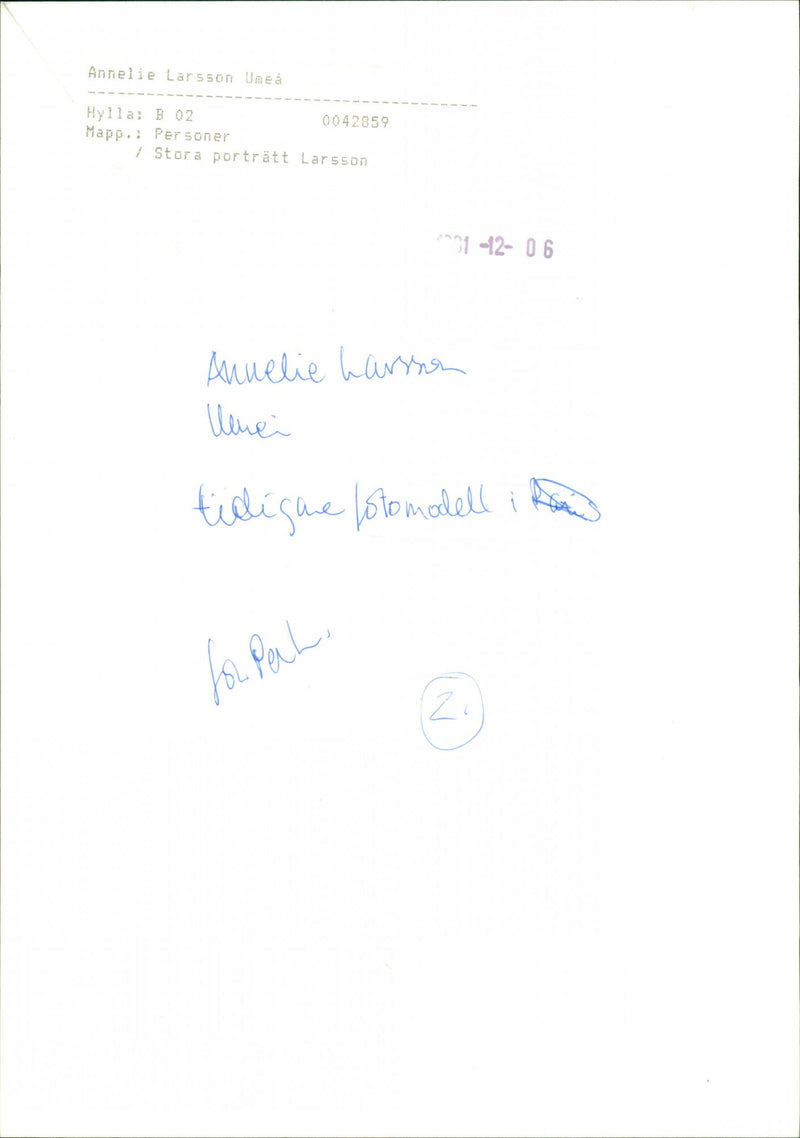 Annelie Larsson Umeå
Hylla: B 02 0042859
Mapp.: Personer
/ Stora porträtt Larsson
-12- 06
Annelie Larsson
Umeå
tidigare fotomodell i
2.